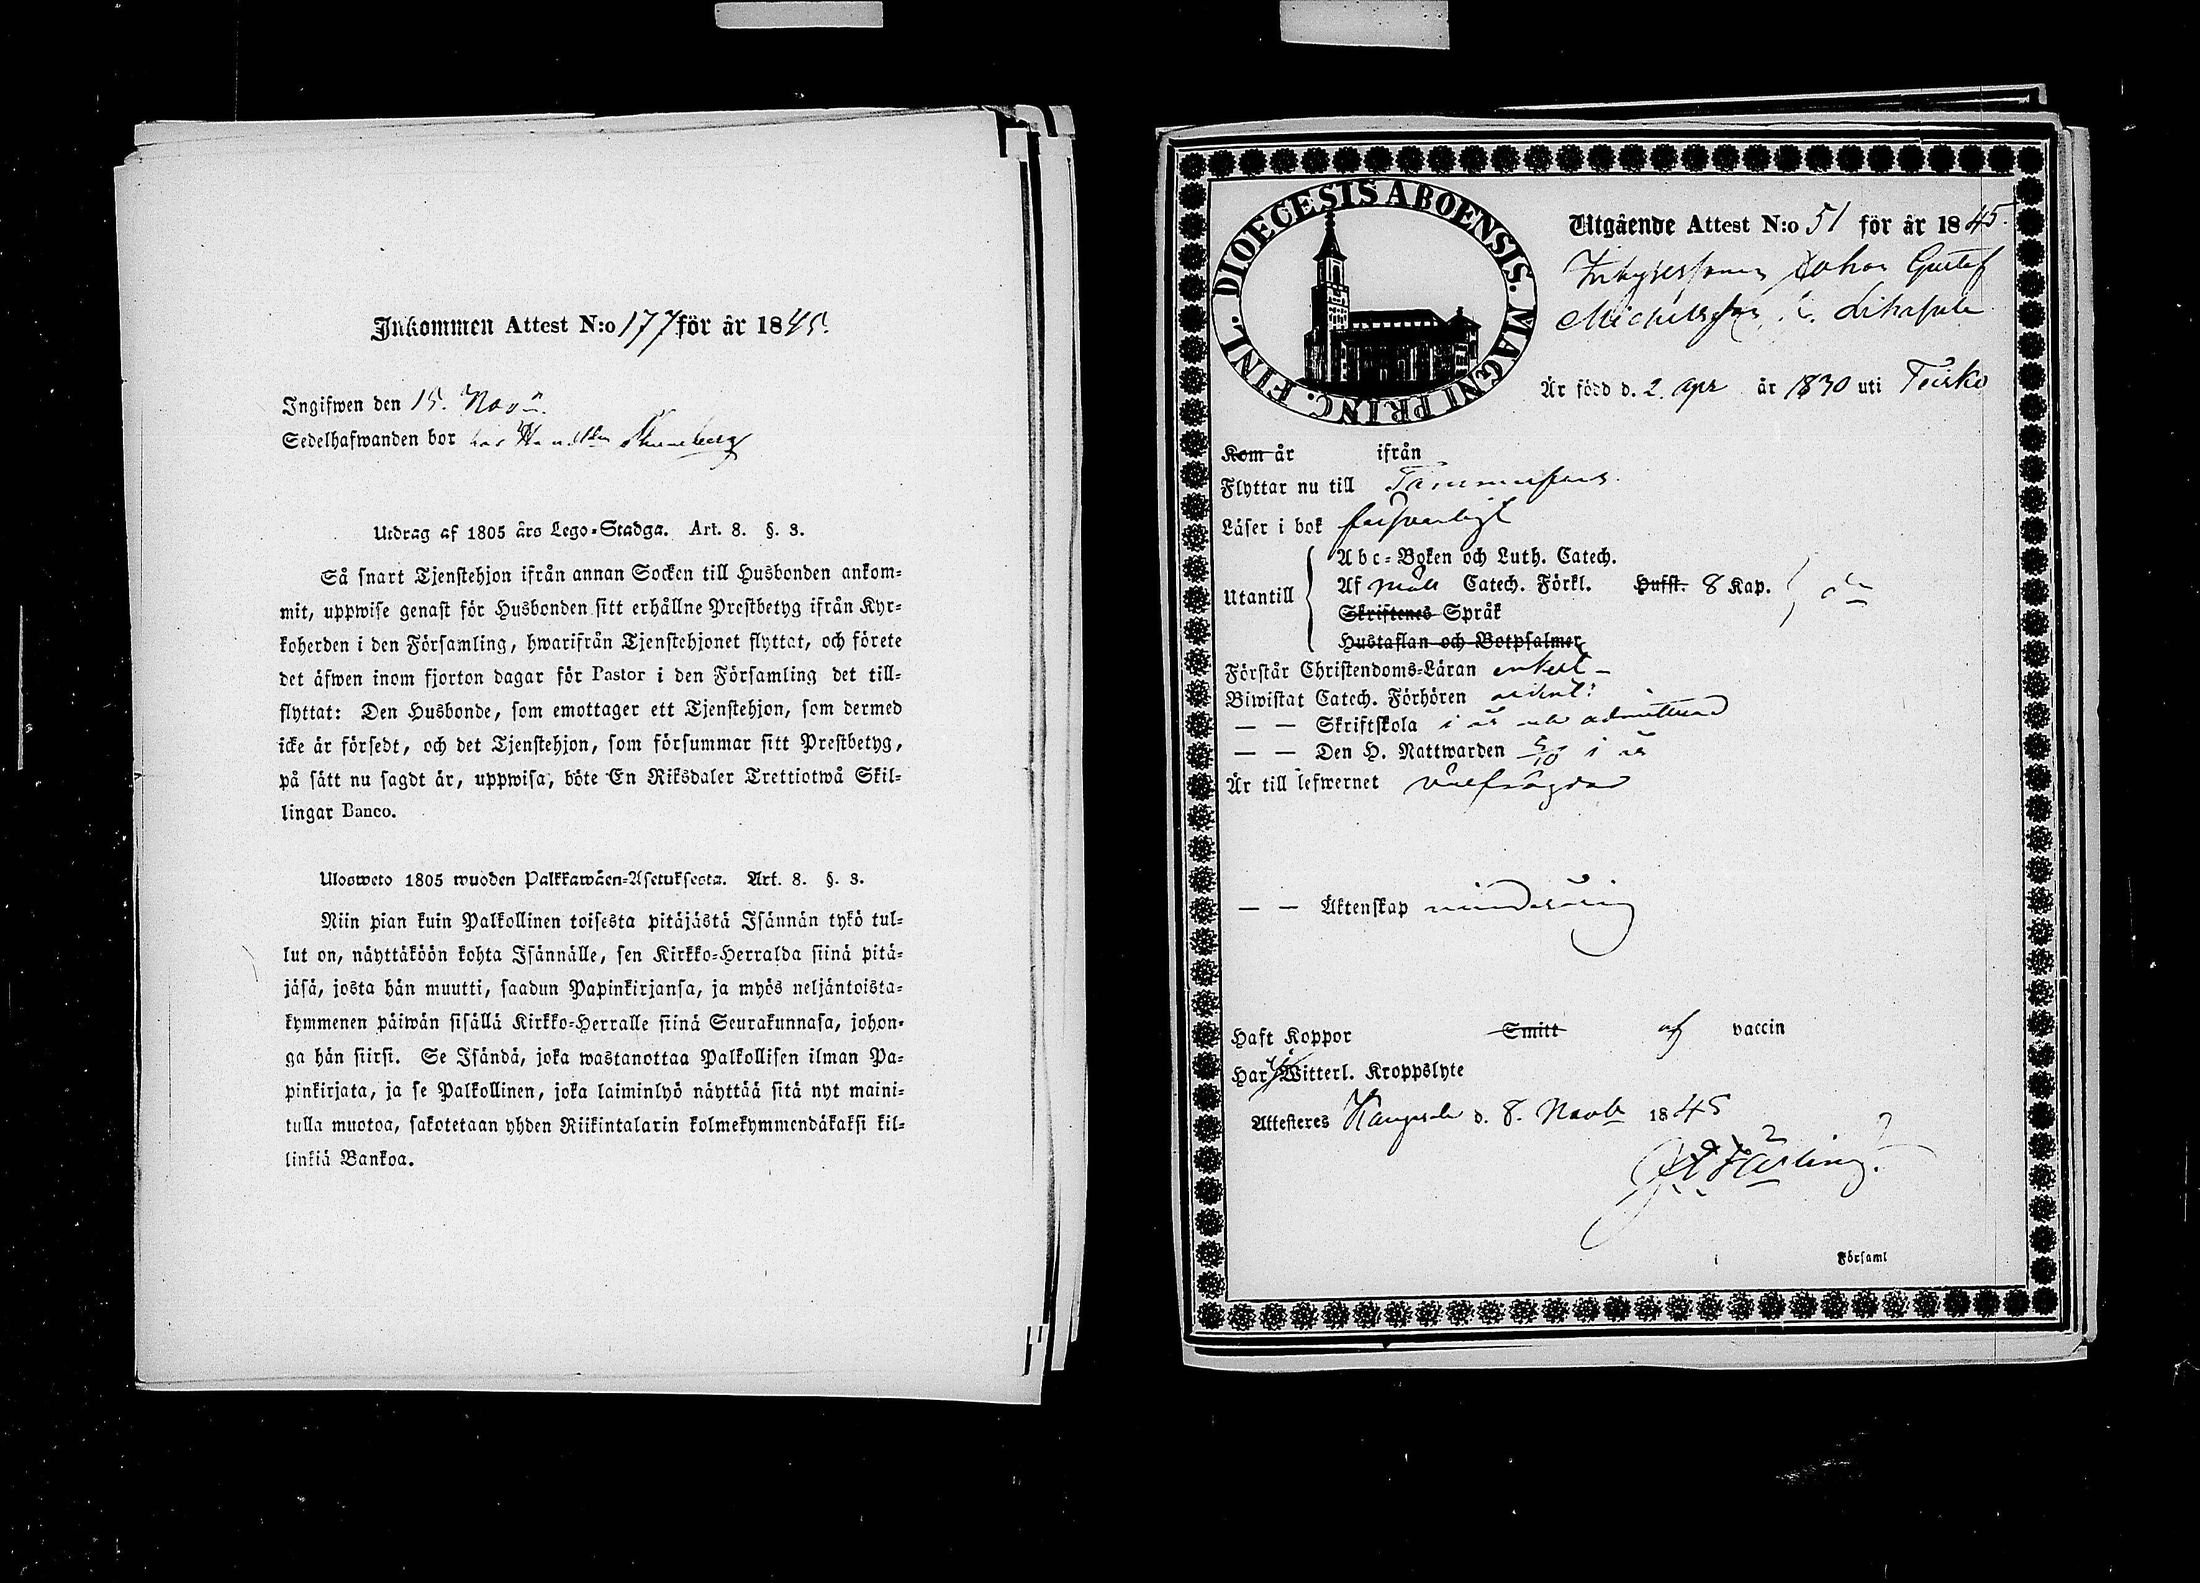 Inkommen Attest N:o 177 för år 1845.
Ingifwen den 15. Nov.
Sedelhafwanden bor hos
Utdrag af 1805 års Lego-Stadga. Art. 8. §. 3.
Så snart Tjenstehjon ifrån annan Socken till Husbonden ankom-
mit, uppwise genast för Husbonden sitt erhållne Prestbetyg ifrån Kyr-
koherden i den Församling, hwarifrån Tjenstehjonet flyttat, och förete
det äfwen inom fjorton dagar för Pastor i den Församling det till-
flyttat: Den Husbonde, som emottager ett Tjenstehjon, som dermed
icke är försedt, och det Tjenstehjon, som försummar sitt Prestbetyg,
på sätt nu sagdt är, uppwisa, böte En Riksdaler Trettiotwå Skil-
lingar Banco.
Ulosweto 1805 wuoden Palkkawäen-Asetuksesta. Art. 8. §. 3.
Niin pian kuin Palkollinen toisesta pitäjästä Isännän tykö tul-
lut on, näyttäköön kohta Isännälle, sen Kirkko-Herralda siinä pitä-
jäsä, josta hän muutti, saadun Papinkirjansa, ja myös neljäntoista-
kymmenen päiwän sisällä Kirkko-Herralle siinä Seurakunnasa, johon-
ga hän siirsi. Se Isändä, joka wastanottaa Palkollisen ilman Pa-
pinkirjata, ja se Palkollinen, joka laiminlyö näyttää sitä nyt maini-
tulla muotoa, sakotetaan yhden Riikintalarin kolmekymmendäkaksi kil-
linkiä Bankoa.
DIOECESIS ABOENSIS. MAGNI PRINC. FINL.
Utgående Attest N:o 51 för år 1845.
Johan Gustaf
Michelsson
Är född d. 2 apr år 1830 uti
Kom år ifrån
Flyttar nu till Tammerfors.
Läser i bok försvarligt
Utantill
Abc-Boken och Luth. Catech.
Af Catech. Förkl. Hufst. 8 Kap.
Skriftenes Språk
Hustaflan och Botpsalmer
Förstår Christendoms-Läran enkelt
Biwistat Catech. Förhören ordentl:
— — Skriftskola i år och admitterad
— — Den H. Nattwarden 5/10 i år
Är till lefwernet välfrägdad
— — Äktenskap minderårig
Haft Koppor Smitt af vaccin
Har Witterl. Kroppslyte
Attesteres d. 8. Novbr 1845
i Församl